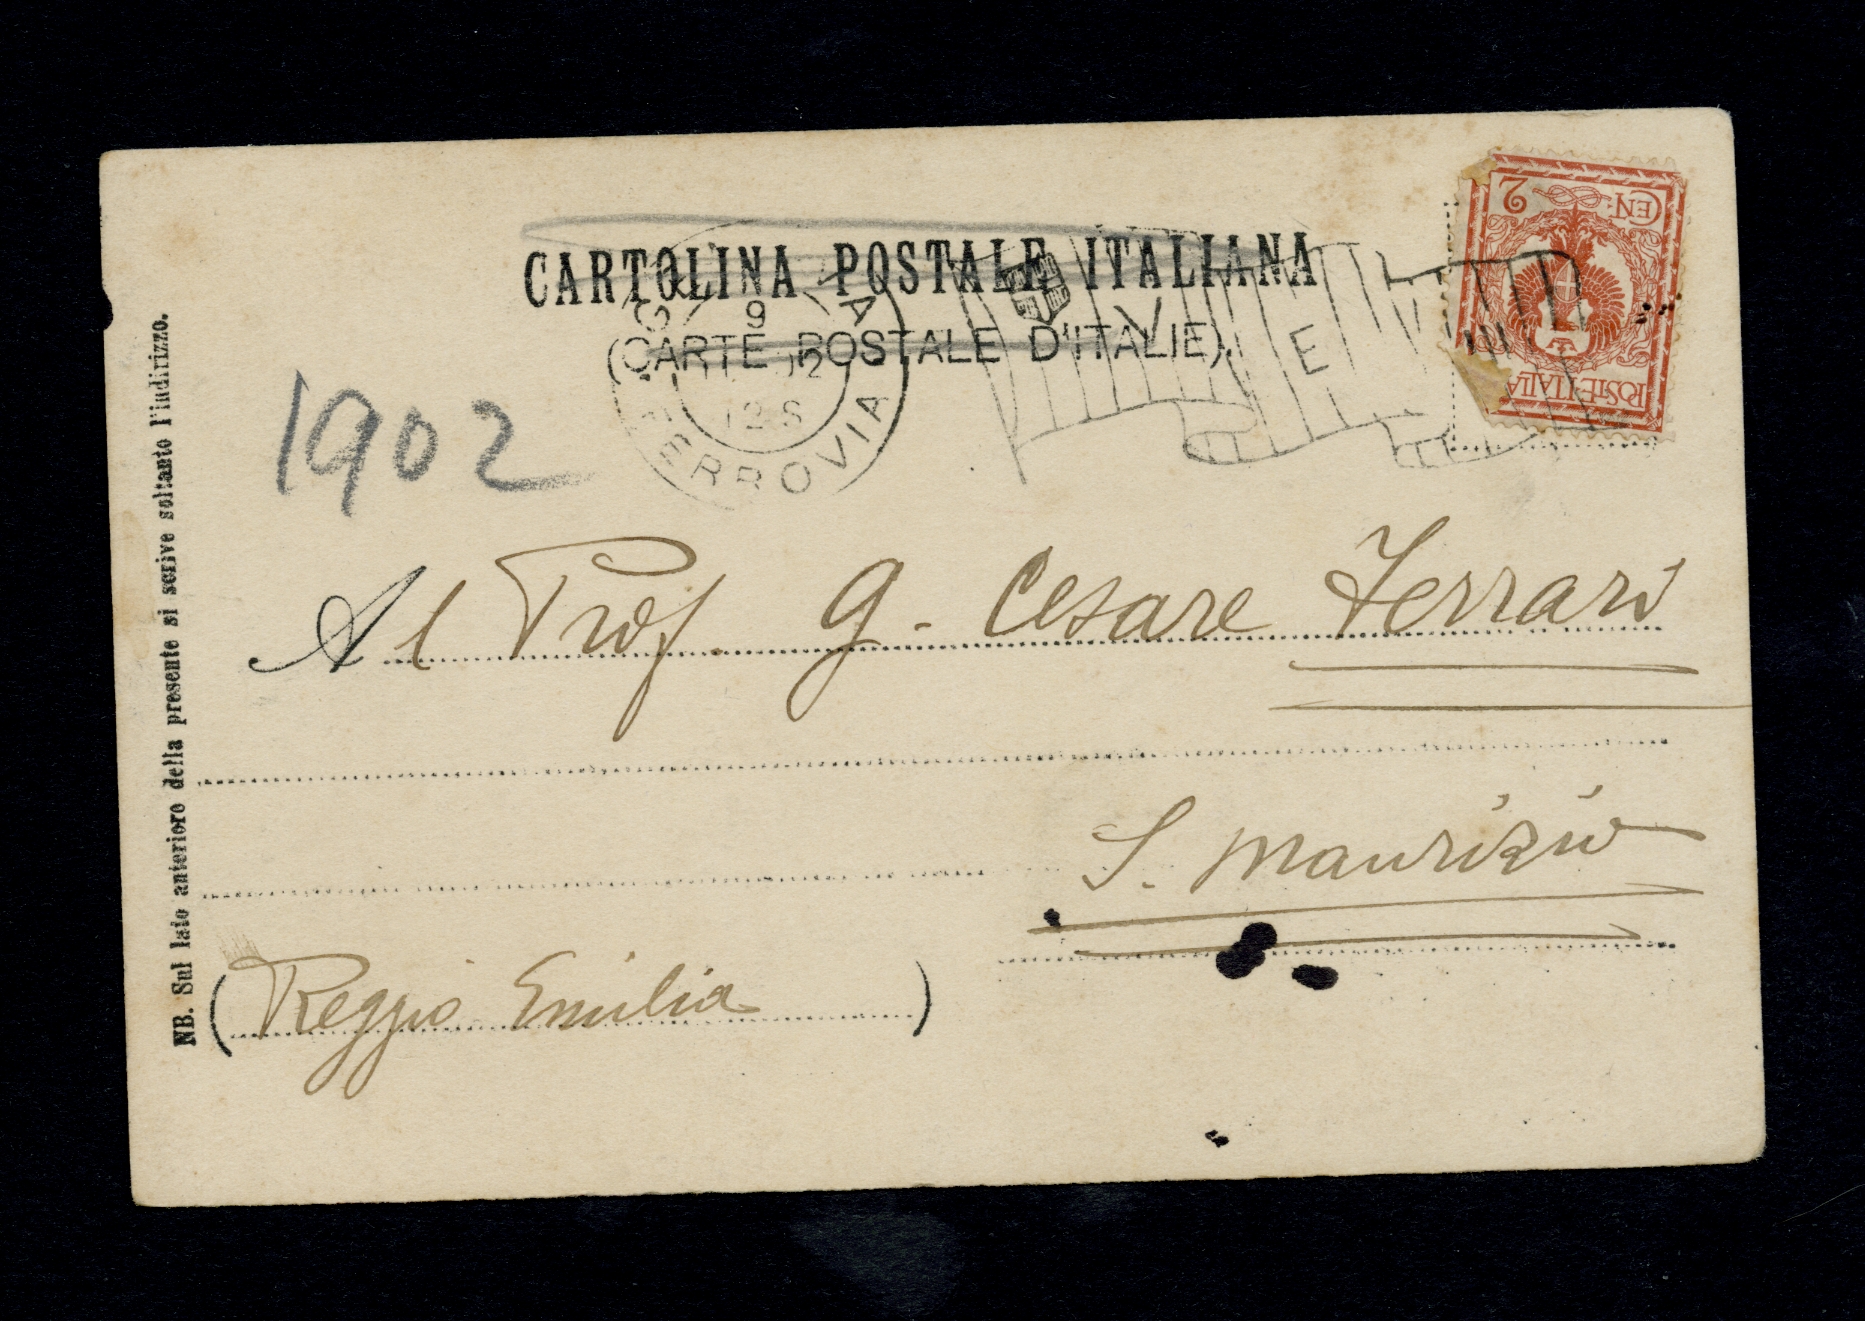 CARTOLINA POSTALE ITALIANA
(CARTE POSTALE D'ITALIE).
CEN. 2
POSTE ITALIANE
9
02
12 S
FERROVIA
V E
1902
Al Prof. G. Cesare Ferrari
S. Maurizio
(Reggio Emilia)
NB. Sul lato anteriore della presente si scrive soltanto l'indirizzo.